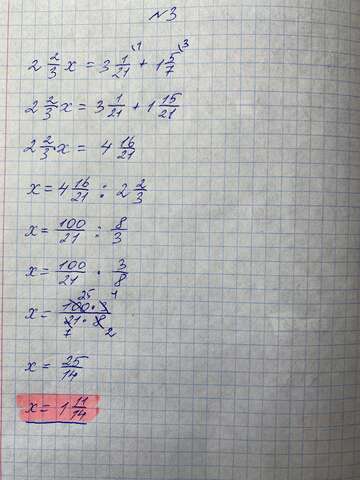 №3
2 2/3 x = 3 1/21 \1 + 1 5/7 \3
2 2/3 x = 3 1/21 + 1 15/21
2 2/3 · x = 4 16/21
x = 4 16/21 : 2 2/3
x = 100/21 : 8/3
x = 100/21 · 3/8
x = 100 25 · 3 1 / 21 7 · 8 2
x = 25/14
x = 1 11/14